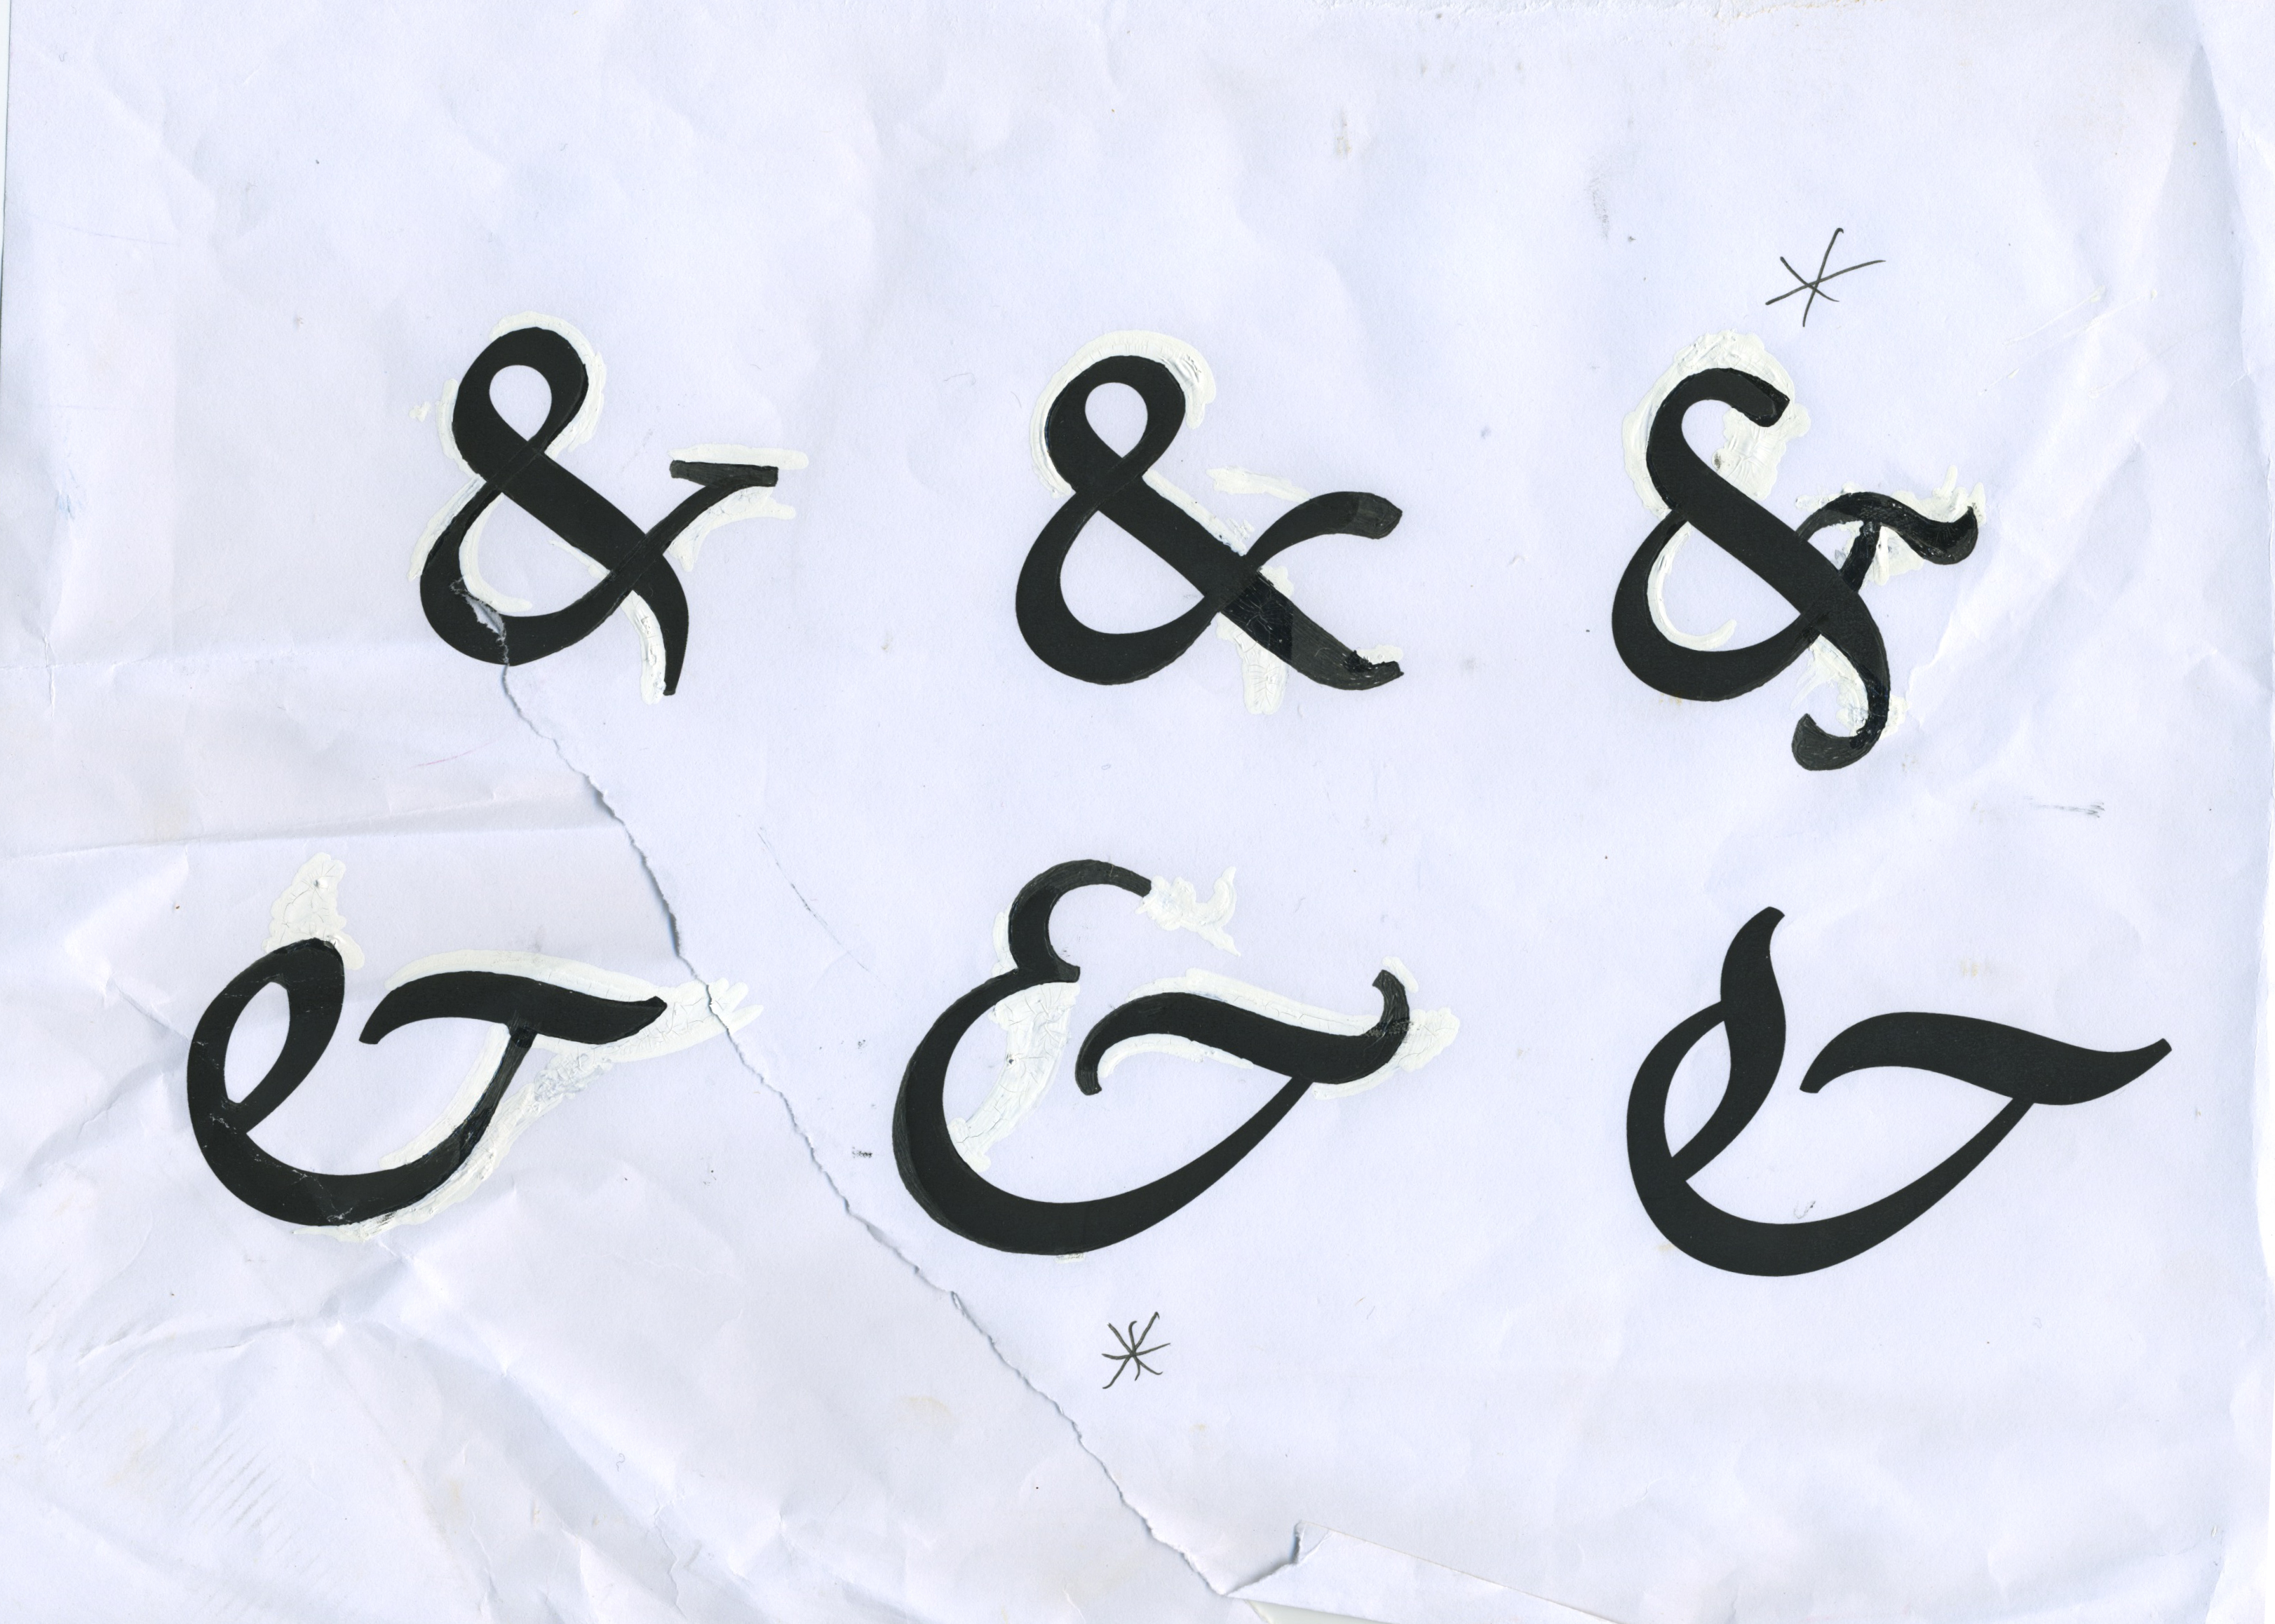 *
& & &
& & &
*